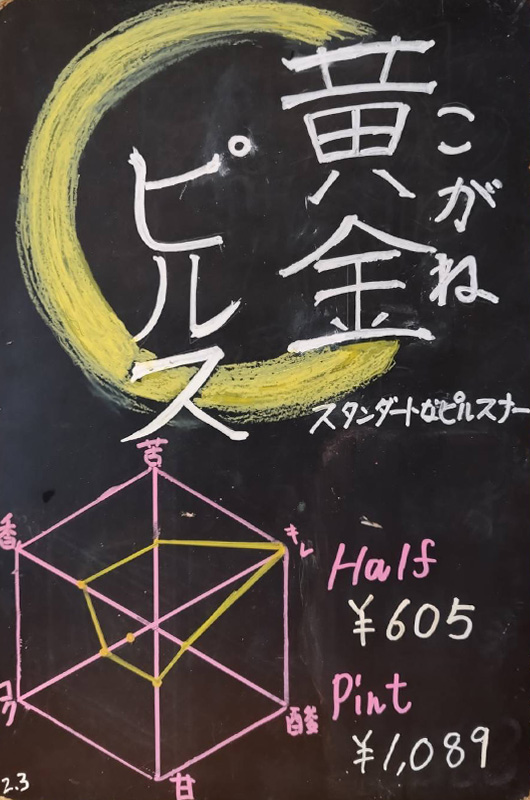 黄金
こがね
ピルス
スタンダートなピルスナー
苦
香
キレ
コク
酸
甘
Half
¥605
Pint
¥1,089
2.3